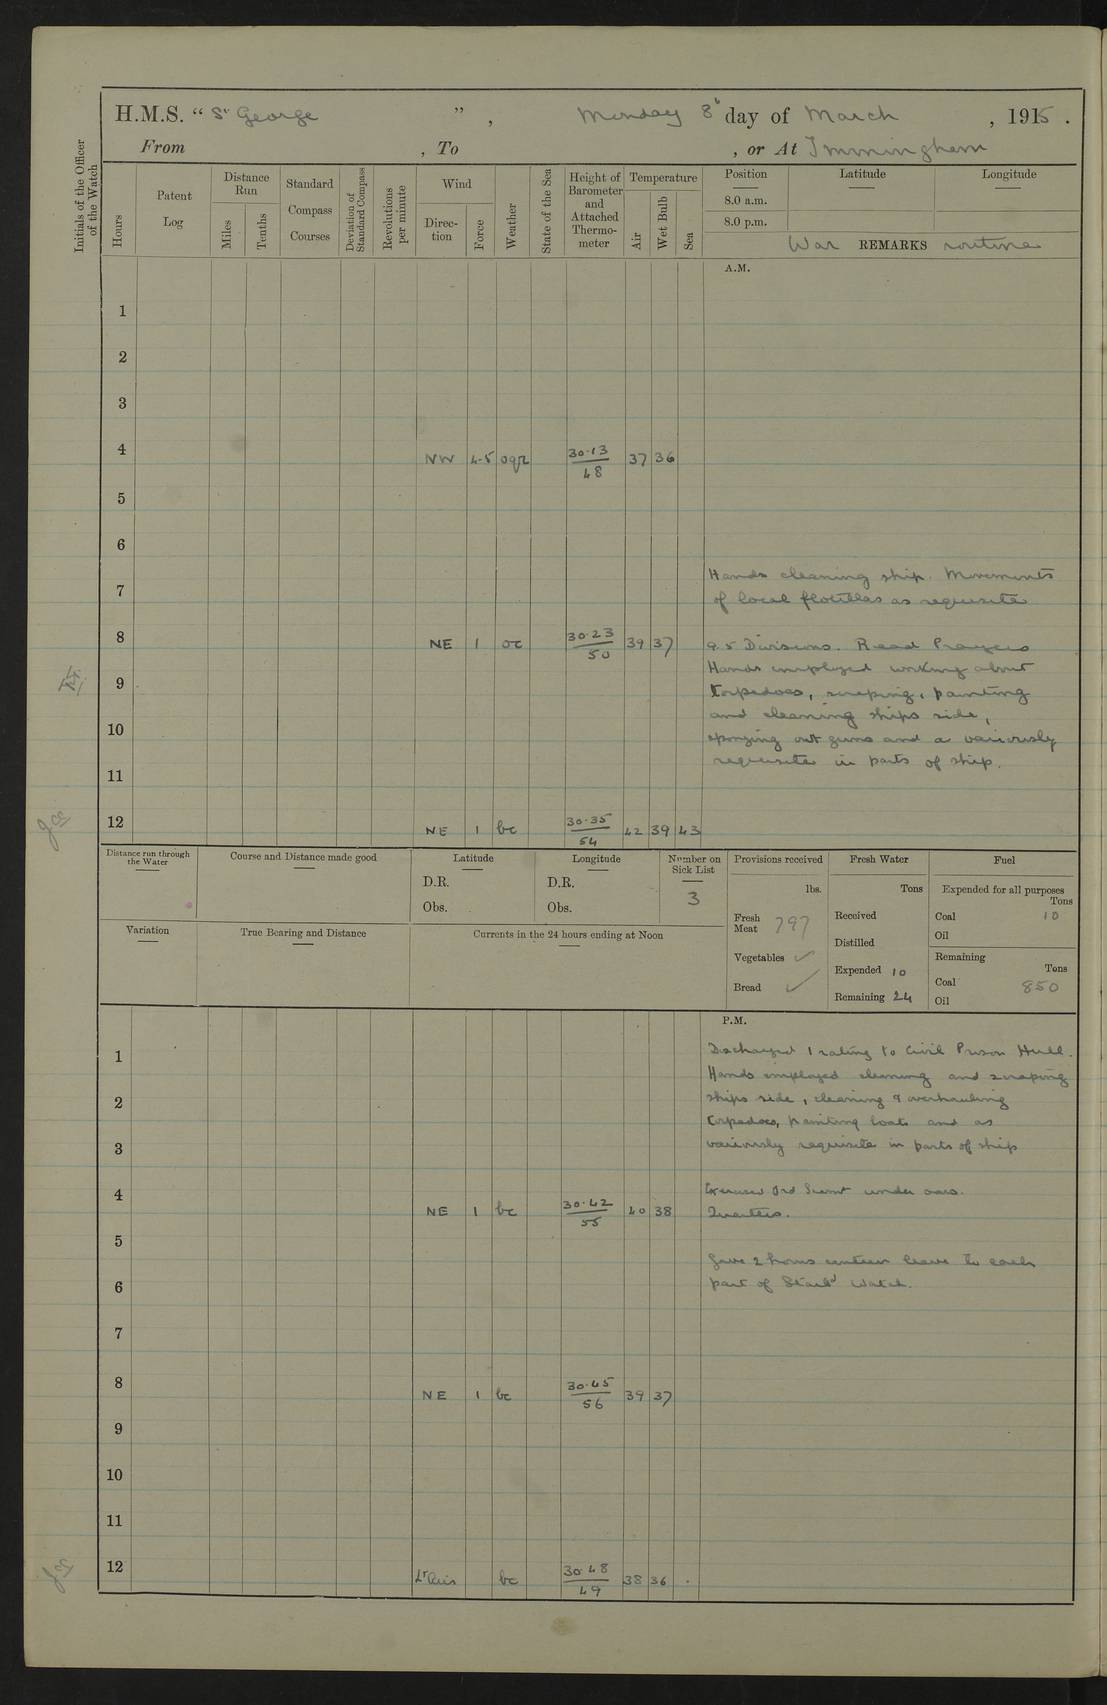 H.M.S. “ St George ” , Monday 8th day of March , 1915 .
From , To , or At Immingham
Initials of the Officer of the Watch
Hours
Patent Log
Distance Run
Miles
Tenths
Standard Compass Courses
Deviation of Standard Compass
Revolutions per minute
Wind
Direc-tion
Force
Weather
State of the Sea
Height of Barometer and Attached Thermo-meter
Temperature
Air
Wet Bulb
Sea
Position
Latitude
Longitude
8.0 a.m.
8.0 p.m.
War REMARKS routine
A.M.
1
2
3
4 NW 4-5 oqr 30·13 48 37 36
5
6
Hands cleaning ship. Movements
7
of local flotillas as requisite
8 NE 1 oc 30·23 50 39 37 9.5 Divisions. Read Prayers
Hands employed working about
9 torpedoes, scraping, painting
and cleaning ships side,
10
sponging out guns and a variously
requisite in parts of ship.
11
12 NE 1 bc 30·35 54 42 39 43
Distance run through the Water
Course and Distance made good
Latitude
D.R.
Obs.
Longitude
D.R.
Obs.
Number on Sick List
3
Variation
True Bearing and Distance
Currents in the 24 hours ending at Noon
Provisions received
lbs.
Fresh Meat 797
Vegetables ✓
Bread ✓
Fresh Water
Tons
Received
Distilled
Expended 10
Remaining 24
Fuel
Expended for all purposes
Tons
Coal 10
Oil
Remaining
Tons
Coal 850
Oil
P.M.
1 Discharged 1 rating to Civil Prison Hull.
Hands employed cleaning and scraping
2 ships side, cleaning & overhauling
torpedoes, painting boats and as
3 variously requisite in parts of ship
4 Exercised 3rd under oars.
NE 1 bc 30·42 55 40 38 Quarters.
5
Gave 2 hours canteen leave to each
6 part of Starbd Watch.
7
8 NE 1 bc 30·45 56 39 37
9
10
11
12 Lt Airs bc 30·48 49 38 36